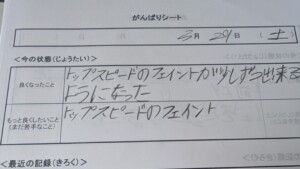 がんばりシート
3月29日(土)
<今の状態(じょうたい)>
良くなったこと
トップスピードのフェイントが少しずつ出来る
ようになった
もっと良くしたいこと
(まだ苦手なこと)
トップスピードのフェイント
<最近の記録(きろく)>